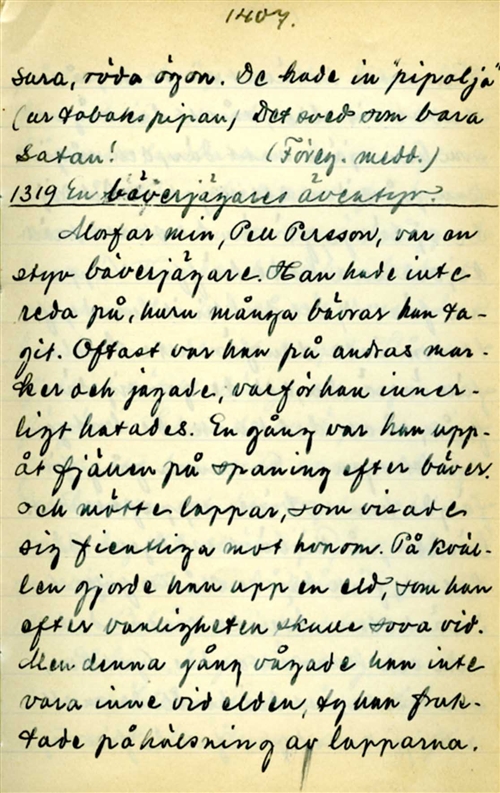 1407.
sura, röda ögon. De hade in "pipolja"
(ur tobakspipan) Det sved som bara
Satan! (Föreg. medd.)
1319 En bäverjägares äventyr.
Morfar min, Pell Persson, var en
styv bäverjägare. Han hade inte
reda på, huru många bävrar han ta-
git. Oftast var han på andras mar-
ker och jagade, varför han inner-
ligt hatades. En gång var han upp-
åt fjällen på spaning efter bäver.
och mötte lappar, som visade
sig fientliga mot honom. På kväl-
len gjorde han upp en eld, som han
efter vanligheten skulle sova vid.
Men denna gång vågade han inte
vara inne vid elden, ty han fruk-
tade påhälsning av lapparna.